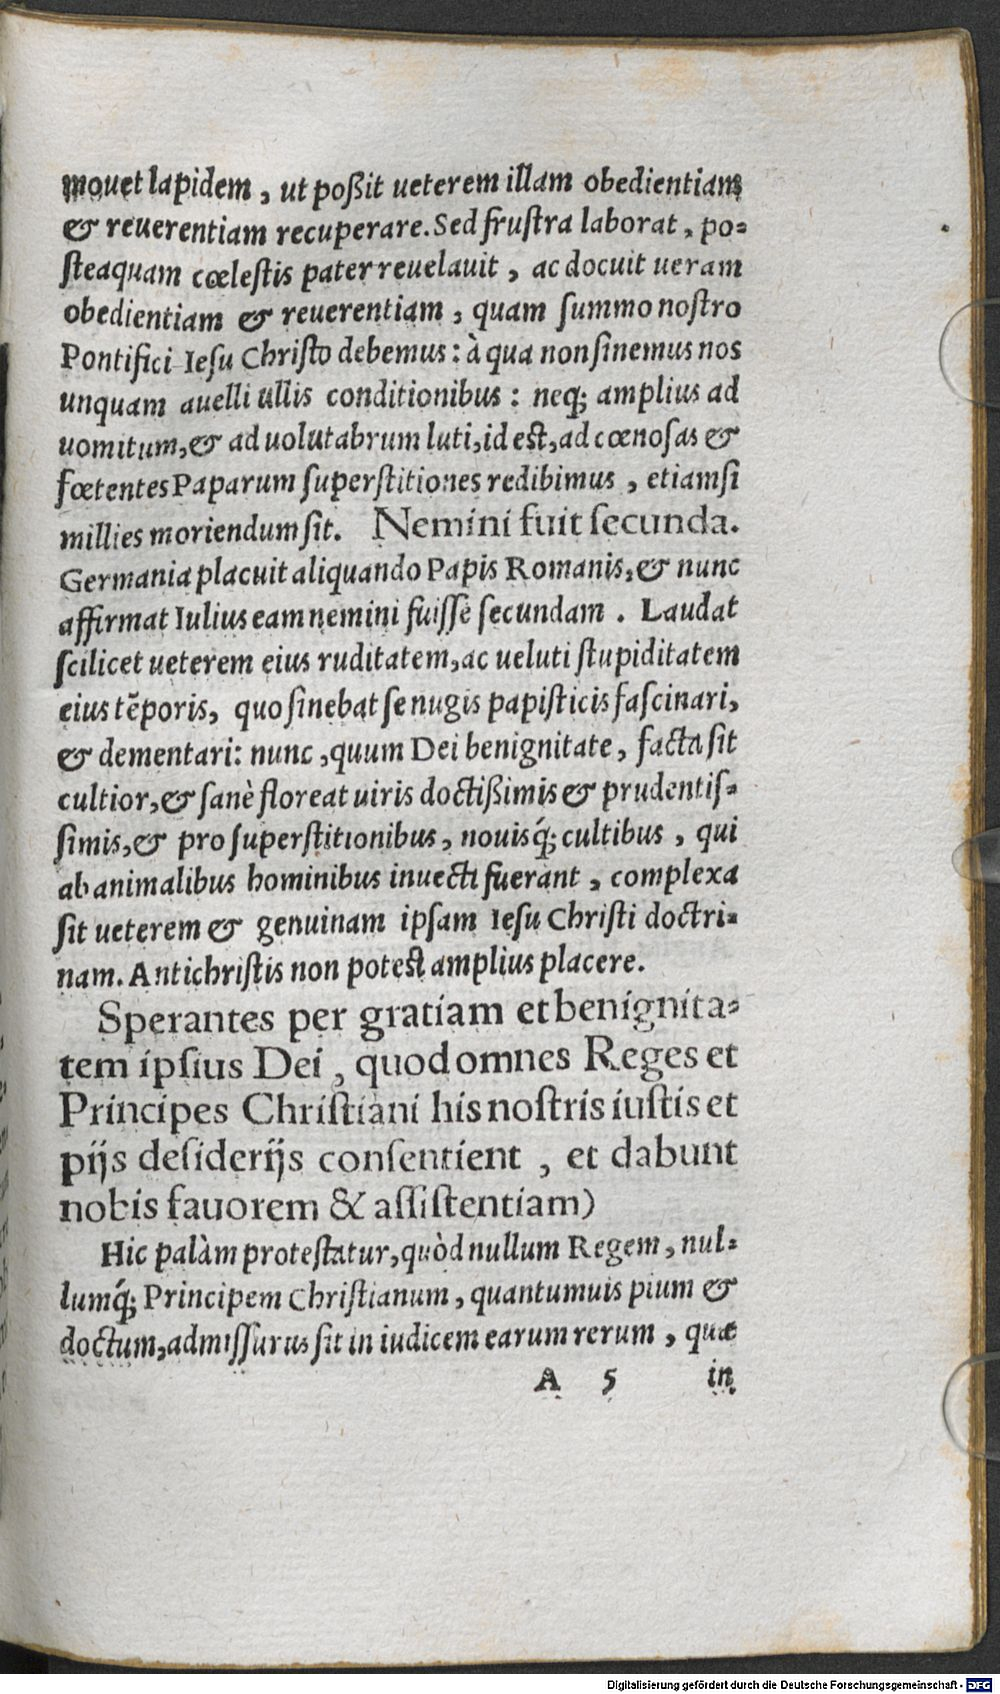 mouet lapidem, ut poßit ueterem illam obedientiam
& reuerentiam recuperare. Sed frustra laborat, po-
steaquam cœlestis pater reuelauit, ac docuit ueram
obedientiam & reuerentiam, quam summo nostro
Pontifici Iesu Christo debemus: à qua non sinemus nos
unquam auelli ullis conditionibus: neq; amplius ad
uomitum, & ad uolutabrum luti, id est, ad cœnosas &
fœtentes Paparum superstitiones redibimus, etiamsi
millies moriendum sit. Nemini fuit secunda.
Germania placuit aliquando Papis Romanis, & nunc
affirmat Iulius eam nemini fuisse secundam. Laudat
scilicet ueterem eius ruditatem, ac ueluti stupiditatem
eius tẽporis, quo sinebat se nugis papisticis fascinari,
& dementari: nunc, quum Dei benignitate, facta sit
cultior, & sanè floreat uiris doctißimis & prudentis-
simis, & pro superstitionibus, nouisq́; cultibus, qui
ab animalibus hominibus inuecti fuerant, complexa
sit ueterem & genuinam ipsam Iesu Christi doctri-
nam. Antichristis non potest amplius placere.
Sperantes per gratiam et benignita-
tem ipsius Dei, quod omnes Reges et
Principes Christiani his nostris iustis et
pijs desiderijs consentient, et dabunt
nobis fauorem & assistentiam)
Hic palàm protestatur, quòd nullum Regem, nul-
lumq́; Principem Christianum, quantumuis pium &
doctum, admissurus sit in iudicem earum rerum, quæ
A 5 in
Digitalisierung gefördert durch die Deutsche Forschungsgemeinschaft - DFG